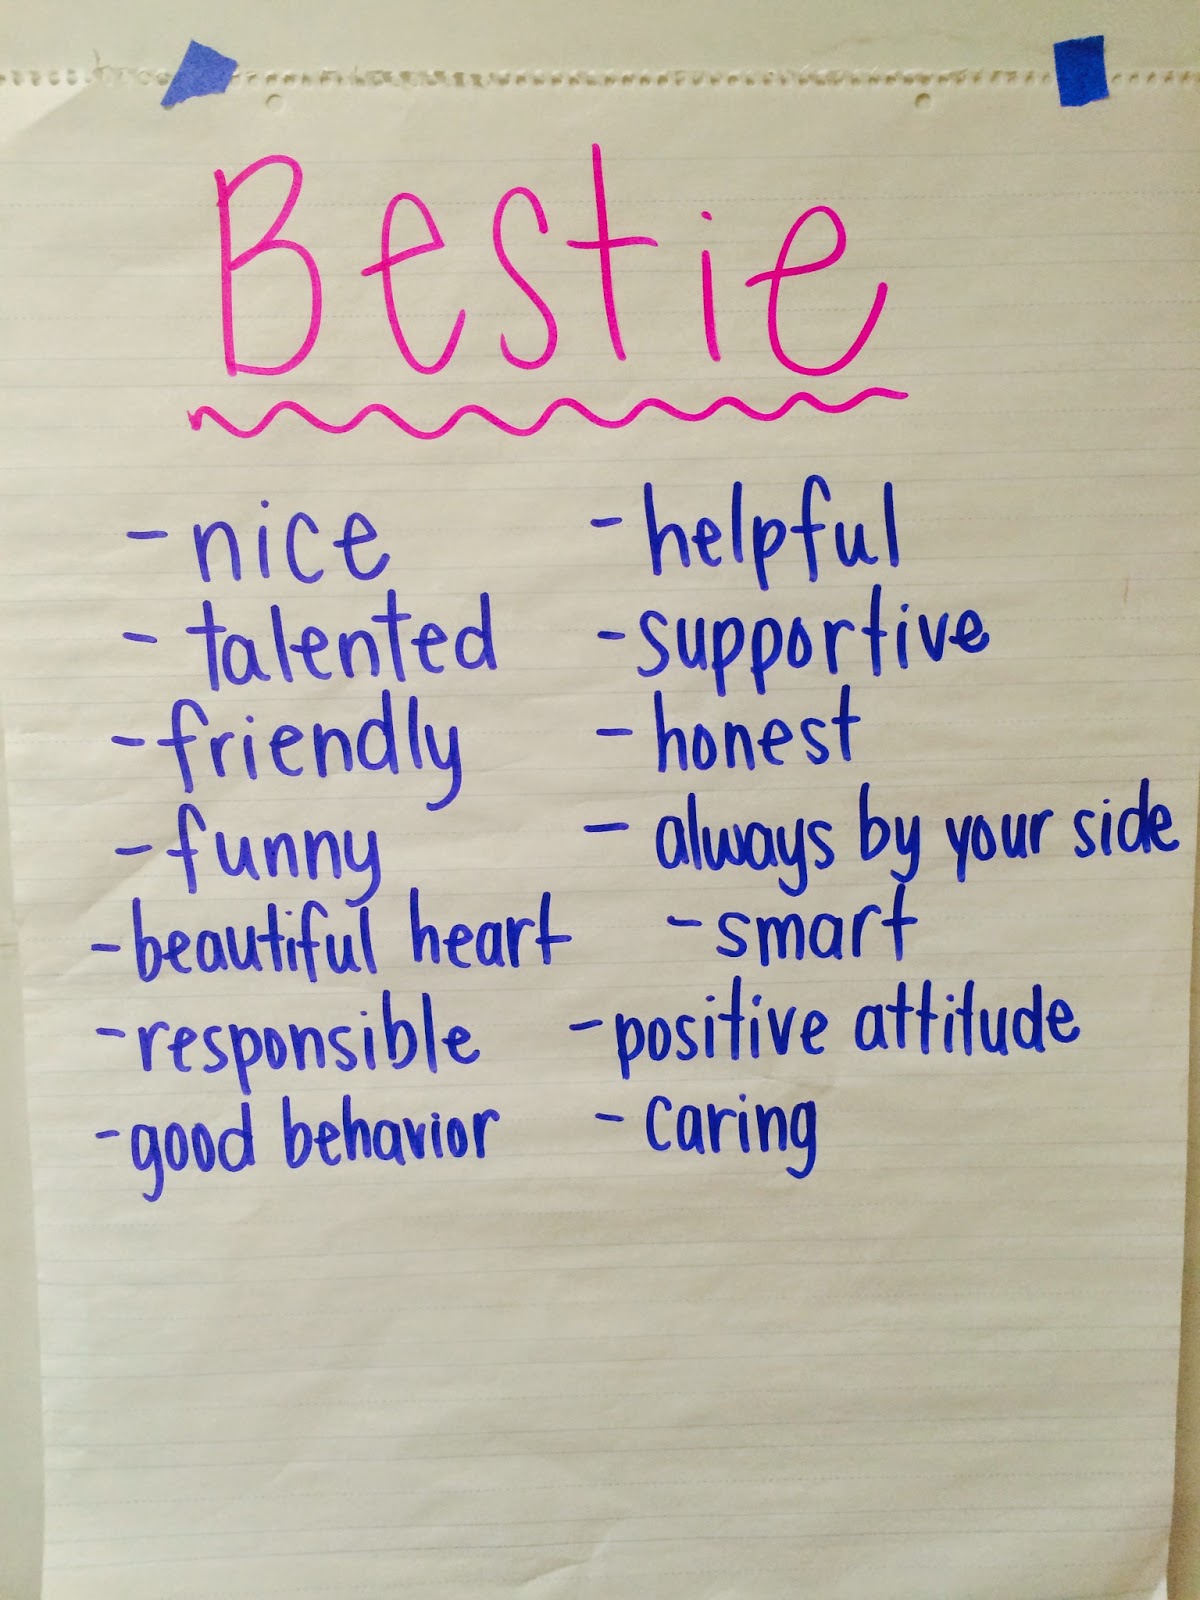 Bestie
- nice
- talented
- friendly
- funny
- beautiful heart
- responsible
- good behavior
- helpful
- supportive
- honest
- always by your side
- smart
- positive attitude
- caring